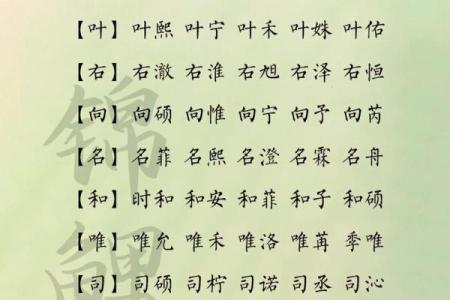 【叶】叶熙 叶宁 叶禾 叶姝 叶佑
【右】右澈 右淮 右旭 右泽 右恒
【向】向硕 向惟 向宁 向予 向芮
【名】名菲 名熙 名澄 名霖 名舟
【和】时和 和安 和菲 和子 和硕
【唯】唯允 唯禾 唯洛 唯苒 季唯
【司】司硕 司柠 司诺 司丞 司沁
锦鲤